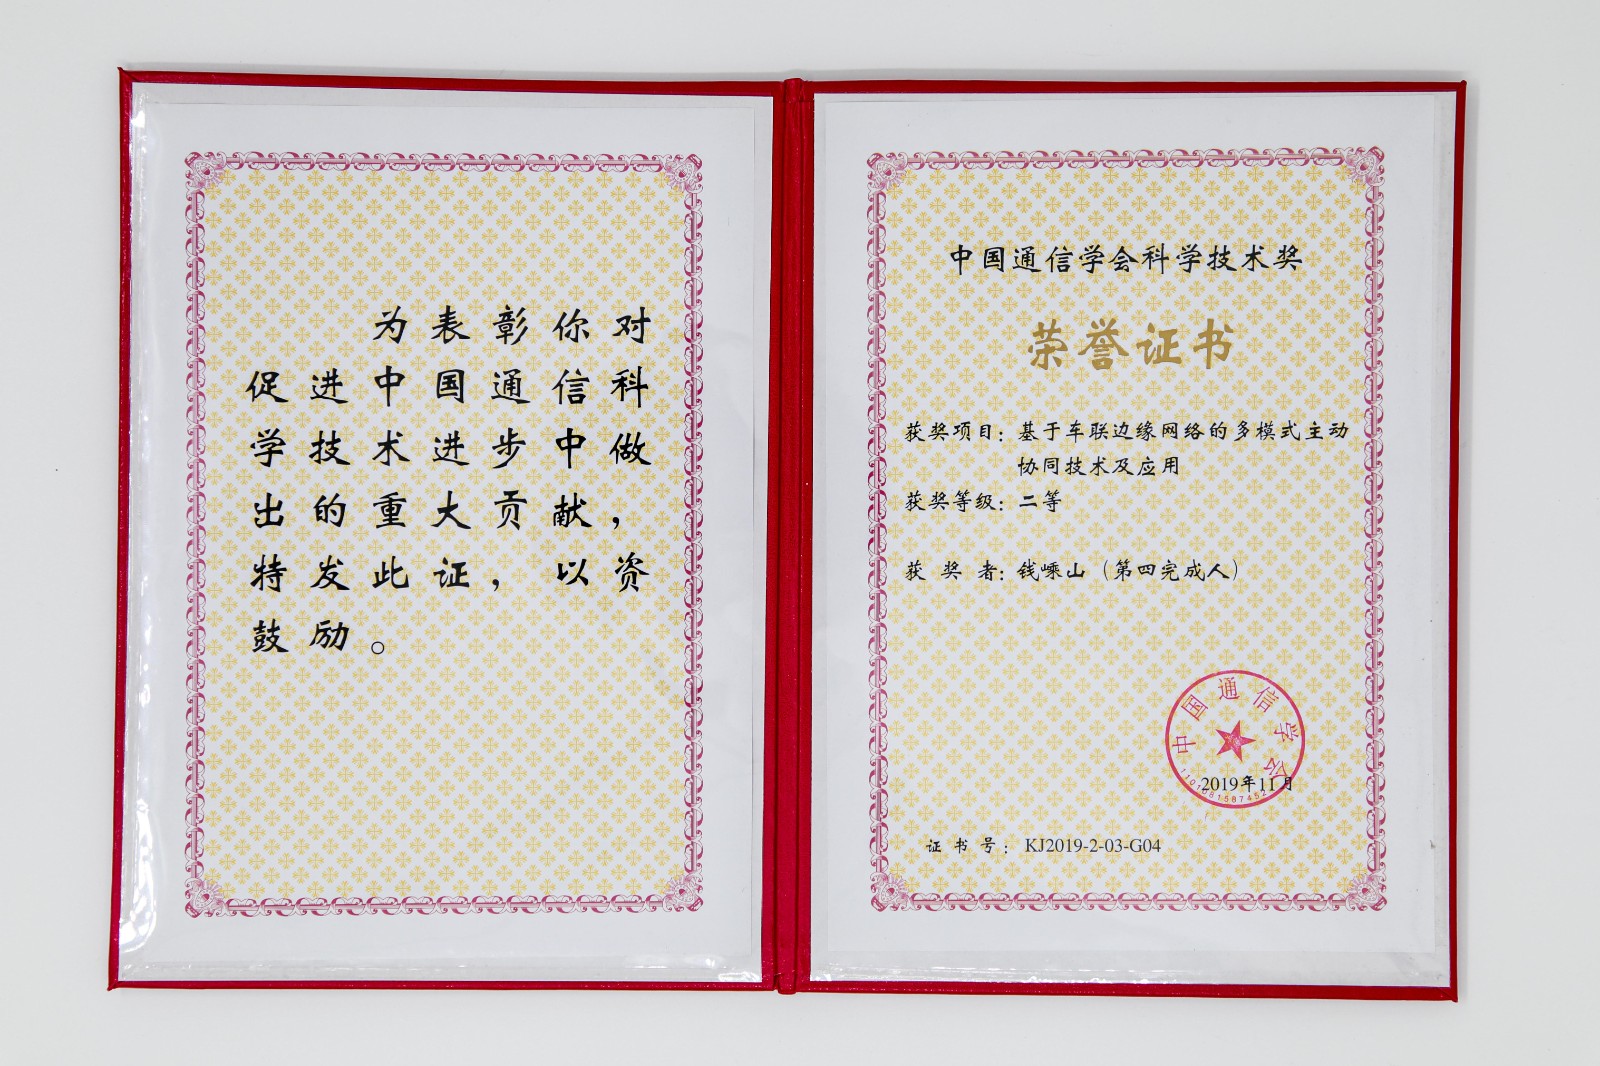 为表彰你对
促进中国通信科
学技术进步中做
出的重大贡献，
特发此证，以资
鼓励。
中国通信学会科学技术奖
荣誉证书
获奖项目：基于车联边缘网络的多模式主动
协同技术及应用
获奖等级：二等
获奖者：钱嵊山（第四完成人）
中国通信学会
2019年11月
证书号：KJ2019-2-03-G04